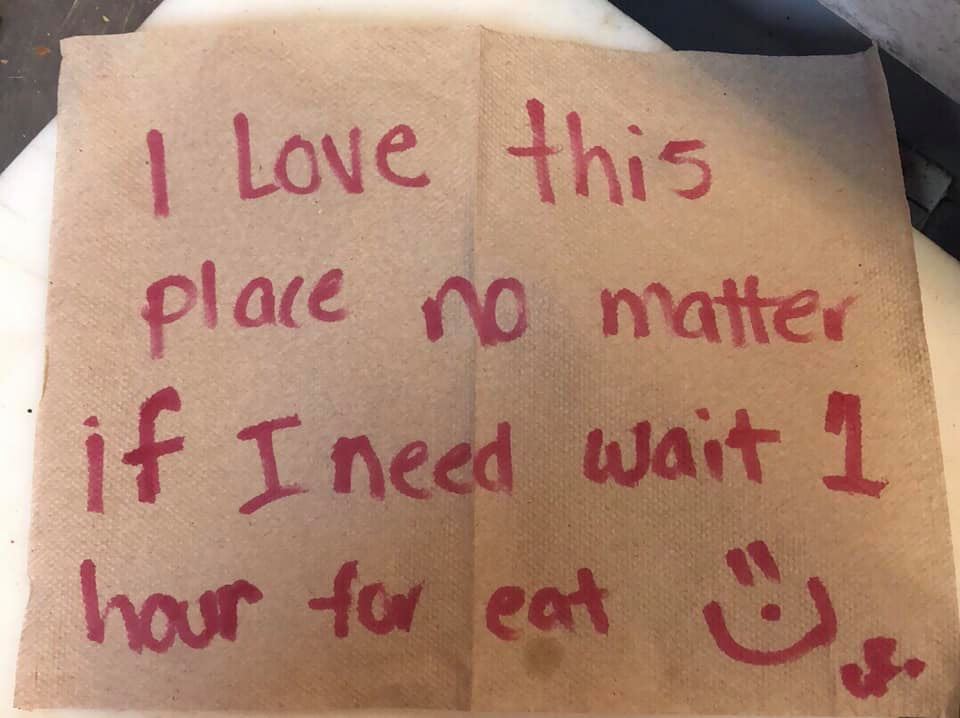 I Love this
place no matter
if I need wait 1
hour for eat